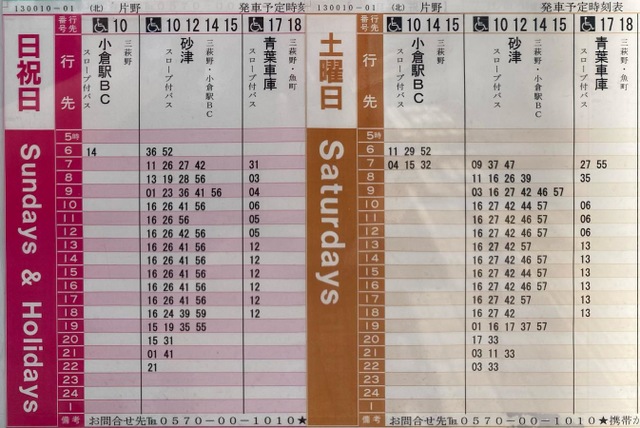 130010-01 (北) 片野 発車予定時刻
日祝日
Sundays & Holidays
番号 行先 10 10 12 14 15 17 18
行先
小倉駅BC 三萩野 スロープ付バス
砂津 三萩野・小倉駅BC スロープ付バス
青葉車庫 三萩野・魚町 スロープ付バス
5時
6 14 36 52
7 11 26 27 42 31
8 13 19 28 56 03
9 01 23 36 41 56 04
10 16 26 41 56 06
11 16 26 56 05
12 16 26 42 56 05
13 16 26 41 56 12
14 16 26 41 56 12
15 16 26 41 56 12
16 16 26 41 56 12
17 16 26 41 56 12
18 16 24 39 59 12
19 15 19 35 55
20 15 31
21 01 41
22 21
23
24
1
備考 お問合せ先℡0570-00-1010★
130010-01 (北) 片野 発車予定時刻表
土曜日
Saturdays
番号 行先 10 14 15 10 12 14 15 17 18
行先
小倉駅BC 三萩野 スロープ付バス
砂津 三萩野・小倉駅BC スロープ付バス
青葉車庫 三萩野・魚町 スロープ付バス
5時
6 11 29 52
7 04 15 32 09 37 47 27 55
8 11 16 26 39 35
9 03 16 27 42 46 57
10 16 27 42 44 57 06
11 16 27 42 46 57 06
12 16 27 42 46 57 06
13 16 27 42 57 13
14 16 27 42 46 57 13
15 16 27 42 44 57 13
16 16 27 42 46 57 13
17 16 27 42 57 13
18 16 27 42 13
19 01 16 17 37 57
20 17 33
21 03 11 33
22 03 33
23
24
1
備考 お問合せ先℡0570-00-1010★携帯か